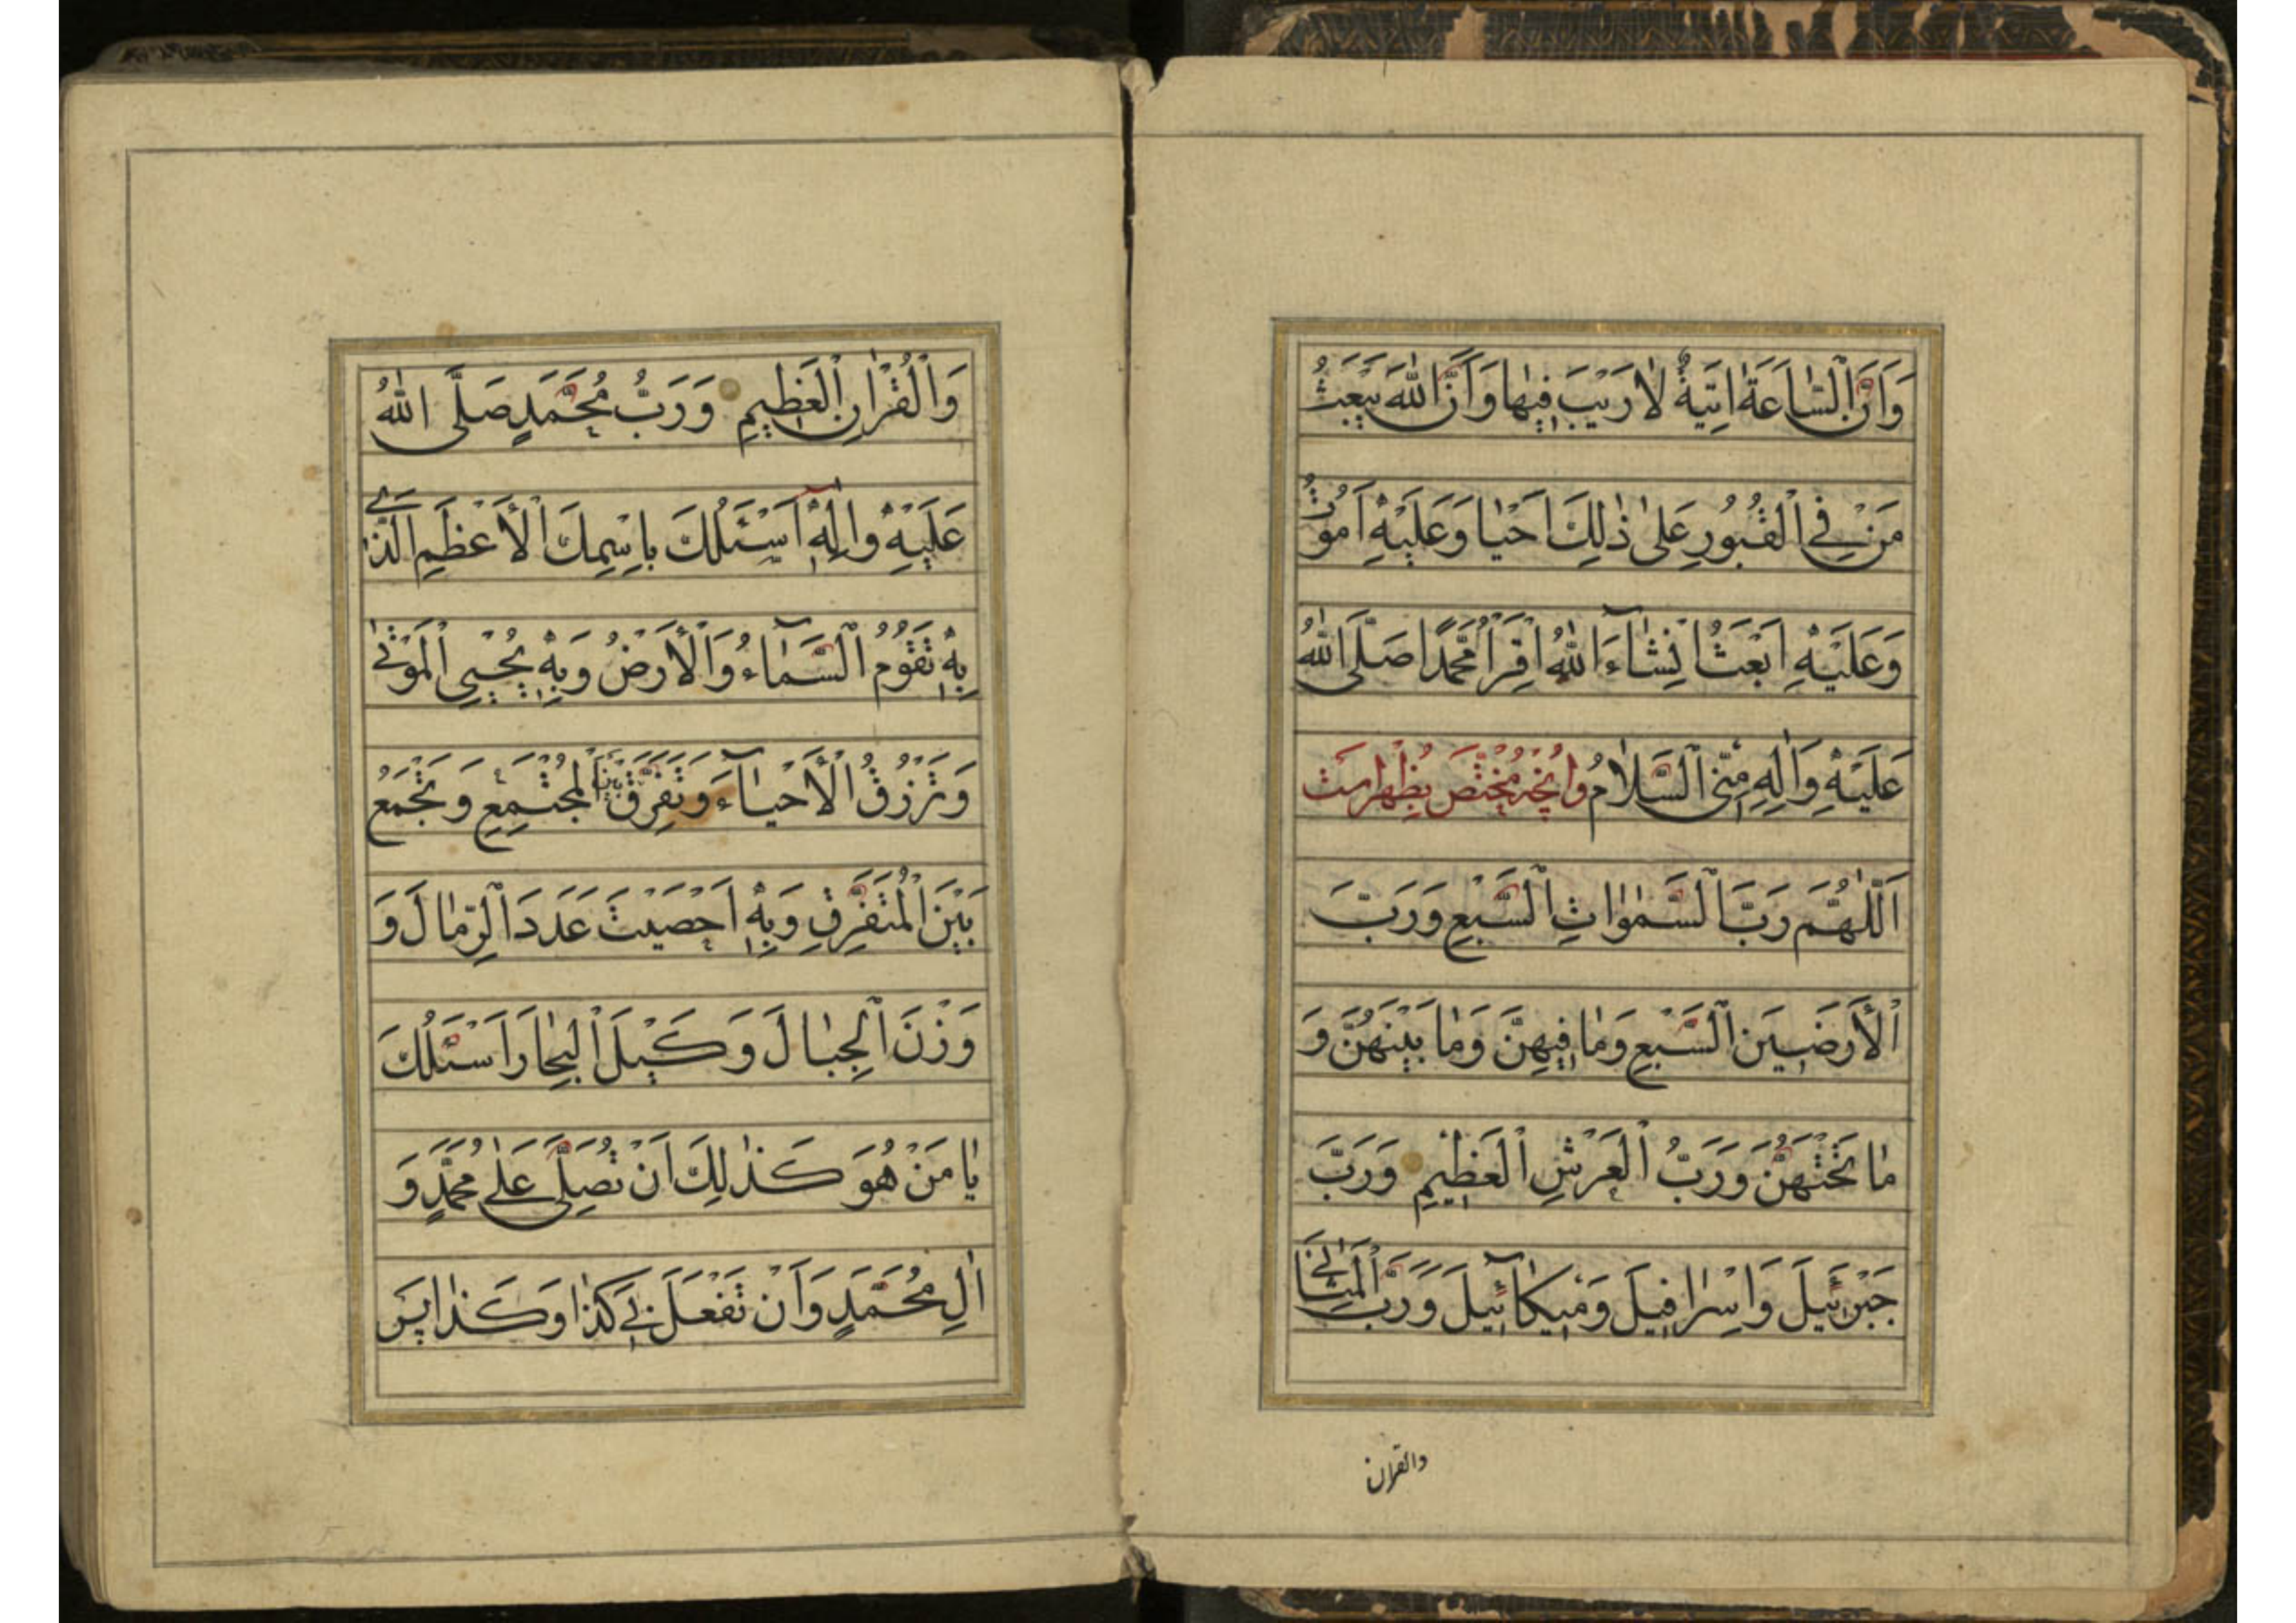 وَاَنَّ الْسّٰاعَةَ اٰتِيَةٌ لاٰرَيْبَ فِيهٰا وَاَنَّ اللّٰهَ يَبْعَثُ
مَنْ فِي الْقُبُورِ عَلىٰ ذٰلِكَ اَحْيٰا وَعَلَيْهِ اَمُوتُ
وَعَلَيْهِ اُبْعَثُ اِنْشٰآءَ اللّٰهُ اِقْرَأْ مُحَمَّدًا صَلَّى اللّٰهُ
عَلَيْهِ وَاٰلِهِ مِنِّى الْسَّلاٰمُ وانچه مختص بظهراست
اَللّٰهُمَّ رَبَّ الْسَّمٰوٰاتِ الْسَّبْعِ وَرَبَّ
الْأَرَضِينَ الْسَّبْعِ وَمٰا فِيهِنَّ وَمٰا بَيْنَهُنَّ وَ
مٰا تَحْتَهُنَّ وَرَبَّ الْعَرْشِ الْعَظِيمِ وَرَبَّ
جَبْرَئِيلَ وَاِسْرٰافِيلَ وَمِيكٰآئِيلَ وَرَبَّ الْمَثٰانِي
والقران
وَالْقُرْاٰنِ الْعَظِيمِ وَرَبَّ مُحَمَّدٍ صَلَّى اللّٰهُ
عَلَيْهِ وَاٰلِهِ اَسْئَلُكَ بِاسْمِكَ الْأَعْظَمِ الَّذِي
بِهِ تَقُومُ الْسَّمٰآءُ وَالْأَرْضُ وَبِهِ يُحْيِي الْمَوْتىٰ
وَتَرْزُقُ الْأَحْيٰآءَ وَتُفَرِّقُ بَيْنَ الْمُجْتَمِعِ وَتَجْمَعُ
بَيْنَ الْمُتَفَرِّقِ وَبِهِ اَحْصَيْتَ عَدَدَ الْرِّمٰالَ وَ
وَزْنَ الْجِبٰالَ وَكَيْلَ الْبِحٰارَ اَسْئَلُكَ
يٰا مَنْ هُوَ كَذٰلِكَ اَنْ تُصَلِّىَ عَلىٰ مُحَمَّدٍ وَ
اٰلِ مُحَمَّدٍ وَاَنْ تَفْعَلَ بِي كَذٰا وَكَذٰا پس